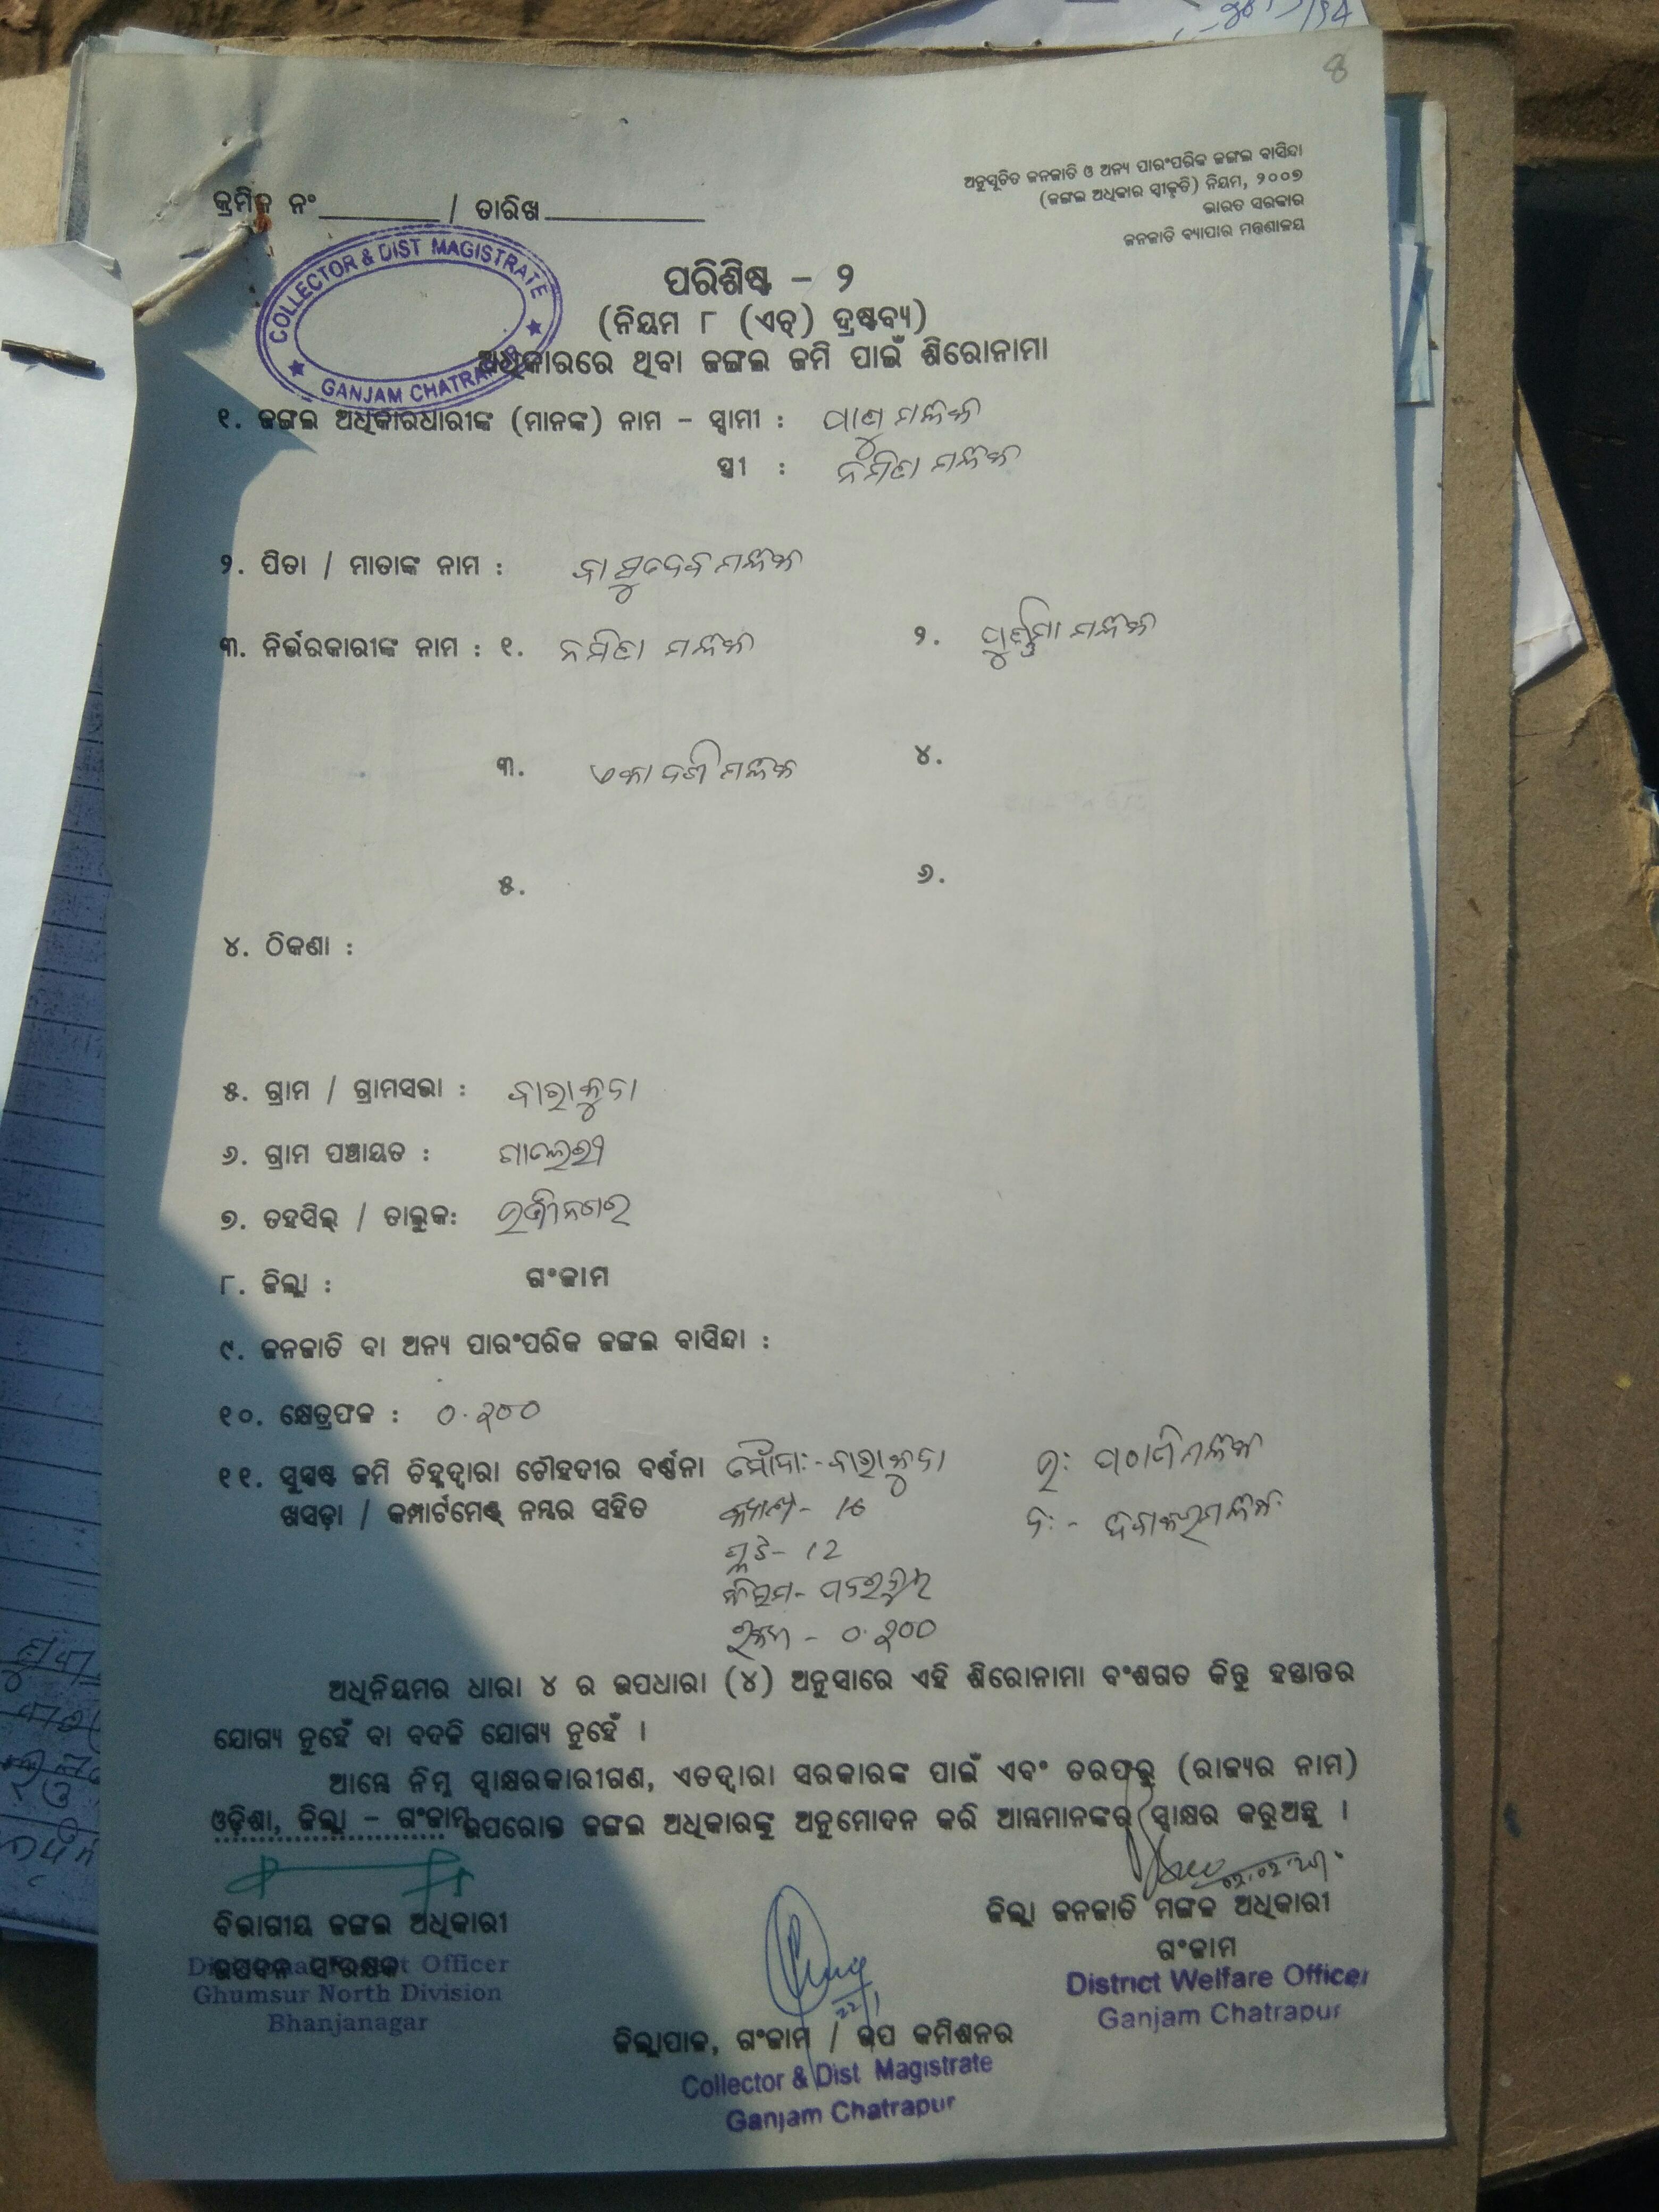 8
ଅନୁସୂଚିତ ଜନଜାତି ଓ ଅନ୍ୟ ପାରଂପରିକ ଜଙ୍ଗଲ ବାସିନ୍ଦା
(ଜଙ୍ଗଲ ଅଧିକାର ସ୍ୱୀକୃତି) ନିୟମ, ୨୦୦୭
ଭାରତ ସରକାର
ଜନଜାତି ବ୍ୟାପାର ମନ୍ତ୍ରଣାଳୟ
କ୍ରମିକ ନଂ ________ / ତାରିଖ __________
COLLECTOR & DIST MAGISTRATE
GANJAM CHATRAPUR
ପରିଶିଷ୍ଟ - ୨
(ନିୟମ ୮ (ଏଚ୍) ଦ୍ରଷ୍ଟବ୍ୟ)
ଅଧିକାରରେ ଥିବା ଜଙ୍ଗଲ ଜମି ପାଇଁ ଶିରୋନାମା
୧. ଜଙ୍ଗଲ ଅଧିକାରଧାରୀଙ୍କ (ମାନଙ୍କ) ନାମ - ସ୍ୱାମୀ : ମଲିକ
ସ୍ତ୍ରୀ : ନମିତା ମଲିକ
୨. ପିତା / ମାତାଙ୍କ ନାମ : ବାସୁଦେବ ମଲିକ
୩. ନିର୍ଭରକାରୀଙ୍କ ନାମ : ୧. ନମିତା ମଲିକ ୨. ପୂର୍ଣ୍ଣିମା ମଲିକ
୩. ଏକାଦଶୀ ମଲିକ ୪.
୫. ୬.
୪. ଠିକଣା :
୫. ଗ୍ରାମ / ଗ୍ରାମସଭା :
୬. ଗ୍ରାମ ପଞ୍ଚାୟତ : ଗାଲେରୀ
୭. ତହସିଲ୍ / ତାଲୁକ:
୮. ଜିଲ୍ଲା : ଗଂଜାମ
୯. ଜନଜାତି ବା ଅନ୍ୟ ପାରଂପରିକ ଜଙ୍ଗଲ ବାସିନ୍ଦା :
୧୦. କ୍ଷେତ୍ରଫଳ : ୦.୨୦୦
୧୧. ସୁସ୍ପଷ୍ଟ ଜମି ଚିହ୍ନଦ୍ୱାରା ଚୌହଦୀର ବର୍ଣ୍ଣନା ମୌଜା:- ଉ: ମଲିକ
ଖସଡ଼ା / କମ୍ପାର୍ଟମେଣ୍ଟ୍ ନମ୍ବର ସହିତ ଦ: - ମଲିକ
ପ୍ଲଟ - 12
କିସମ -
ରକବା - ୦.୨୦୦
ଅଧିନିୟମର ଧାରା ୪ ର ଉପଧାରା (୪) ଅନୁସାରେ ଏହି ଶିରୋନାମା ବଂଶଗତ କିନ୍ତୁ ହସ୍ତାନ୍ତର
ଯୋଗ୍ୟ ନୁହେଁ ବା ବଦଳି ଯୋଗ୍ୟ ନୁହେଁ ।
ଆମ୍ଭେ ନିମ୍ନ ସ୍ୱାକ୍ଷରକାରୀଗଣ, ଏତଦ୍ୱାରା ସରକାରଙ୍କ ପାଇଁ ଏବଂ ତରଫରୁ (ରାଜ୍ୟର ନାମ)
ଓଡ଼ିଶା, ଜିଲ୍ଲା - ଗଂଜାମ ଉପରୋକ୍ତ ଜଙ୍ଗଲ ଅଧିକାରଙ୍କୁ ଅନୁମୋଦନ କରି ଆମ୍ଭମାନଙ୍କର ସ୍ୱାକ୍ଷର କରୁଅଛୁ ।
ବିଭାଗୀୟ ଜଙ୍ଗଲ ଅଧିକାରୀ
ଉପବନ ସଂରକ୍ଷକ
Officer
Ghumsur North Division
Bhanjanagar
ଜିଲ୍ଲା ଜନଜାତି ମଙ୍ଗଳ ଅଧିକାରୀ
ଗଂଜାମ
District Welfare Officer
Ganjam Chatrapur
ଜିଲ୍ଲାପାଳ, ଗଂଜାମ / ଉପ କମିଶନର
Collector & Dist Magistrate
Ganjam Chatrapur